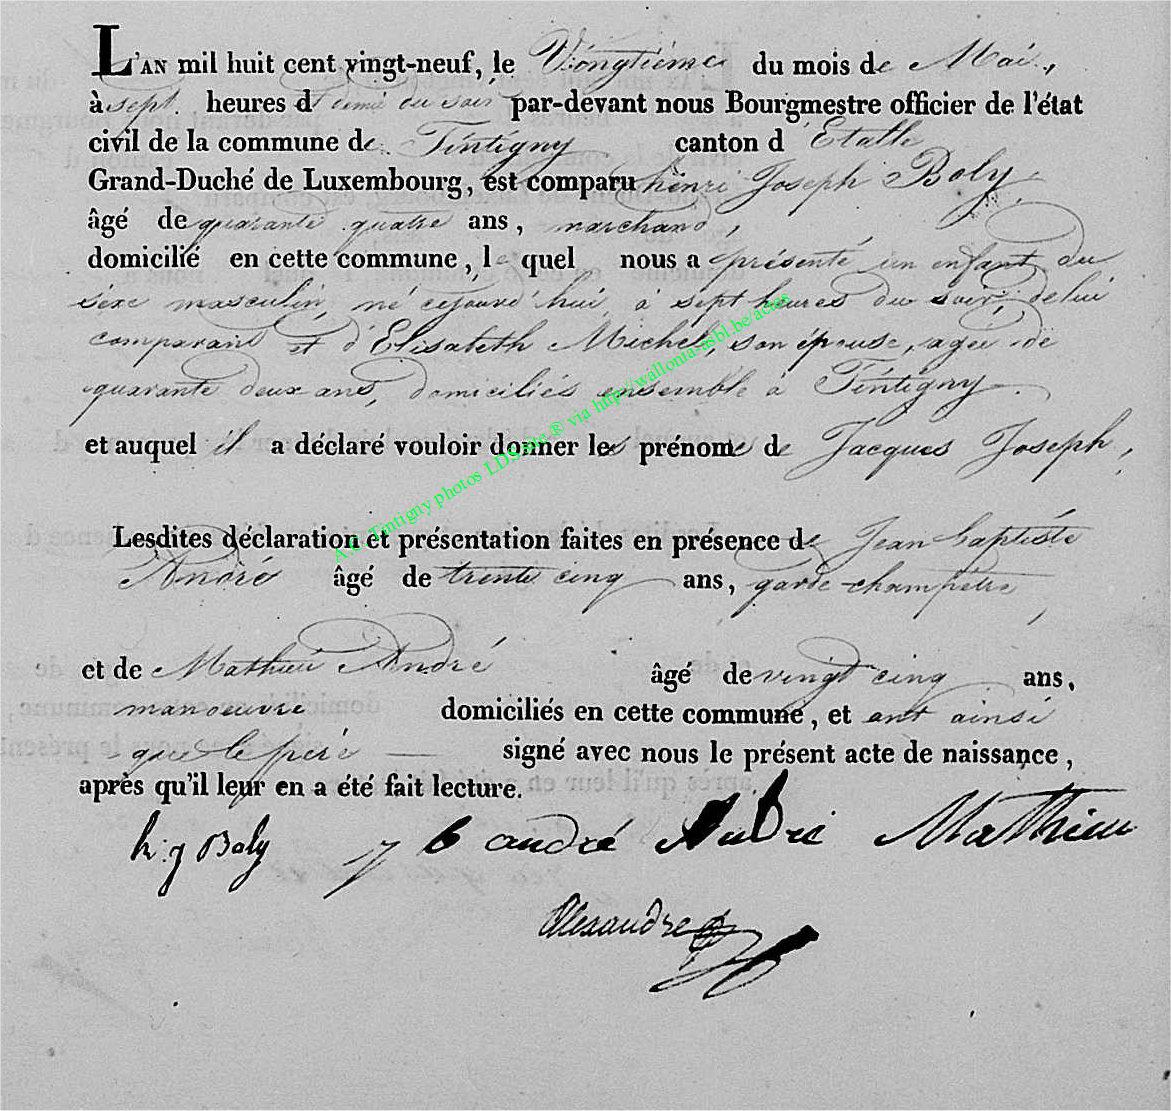 L'AN mil huit cent vingt-neuf, le Vingtième du mois de Mai,
à sept heures et demie du soir par-devant nous Bourgmestre officier de l'état
civil de la commune de Tintigny canton d'Etalle
Grand-Duché de Luxembourg, est comparu henri Joseph Boly,
âgé de quarante quatre ans, marchand,
domicilié en cette commune, le quel nous a présenté un enfant du
sexe masculin, né cejourd'hui à sept heures du soir, de lui
comparant et d'Elisabeth Michel, son épouse, agée de
quarante deux ans, domiciliés ensemble à Tintigny
et auquel il a déclaré vouloir donner les prénoms de Jacques Joseph,
Lesdites déclaration et présentation faites en présence de Jean baptiste
André âgé de trente cinq ans, garde-champétre,
et de Mathieu André âgé de vingt cinq ans,
manoeuvre domiciliés en cette commune, et ont ainsi
que le pere signé avec nous le présent acte de naissance,
après qu'il leur en a été fait lecture.
h. j Boly j b andré André Mathieu
Alexandre
Tintigny photos LDS site ® via http://wallonia-asbl.be/actes